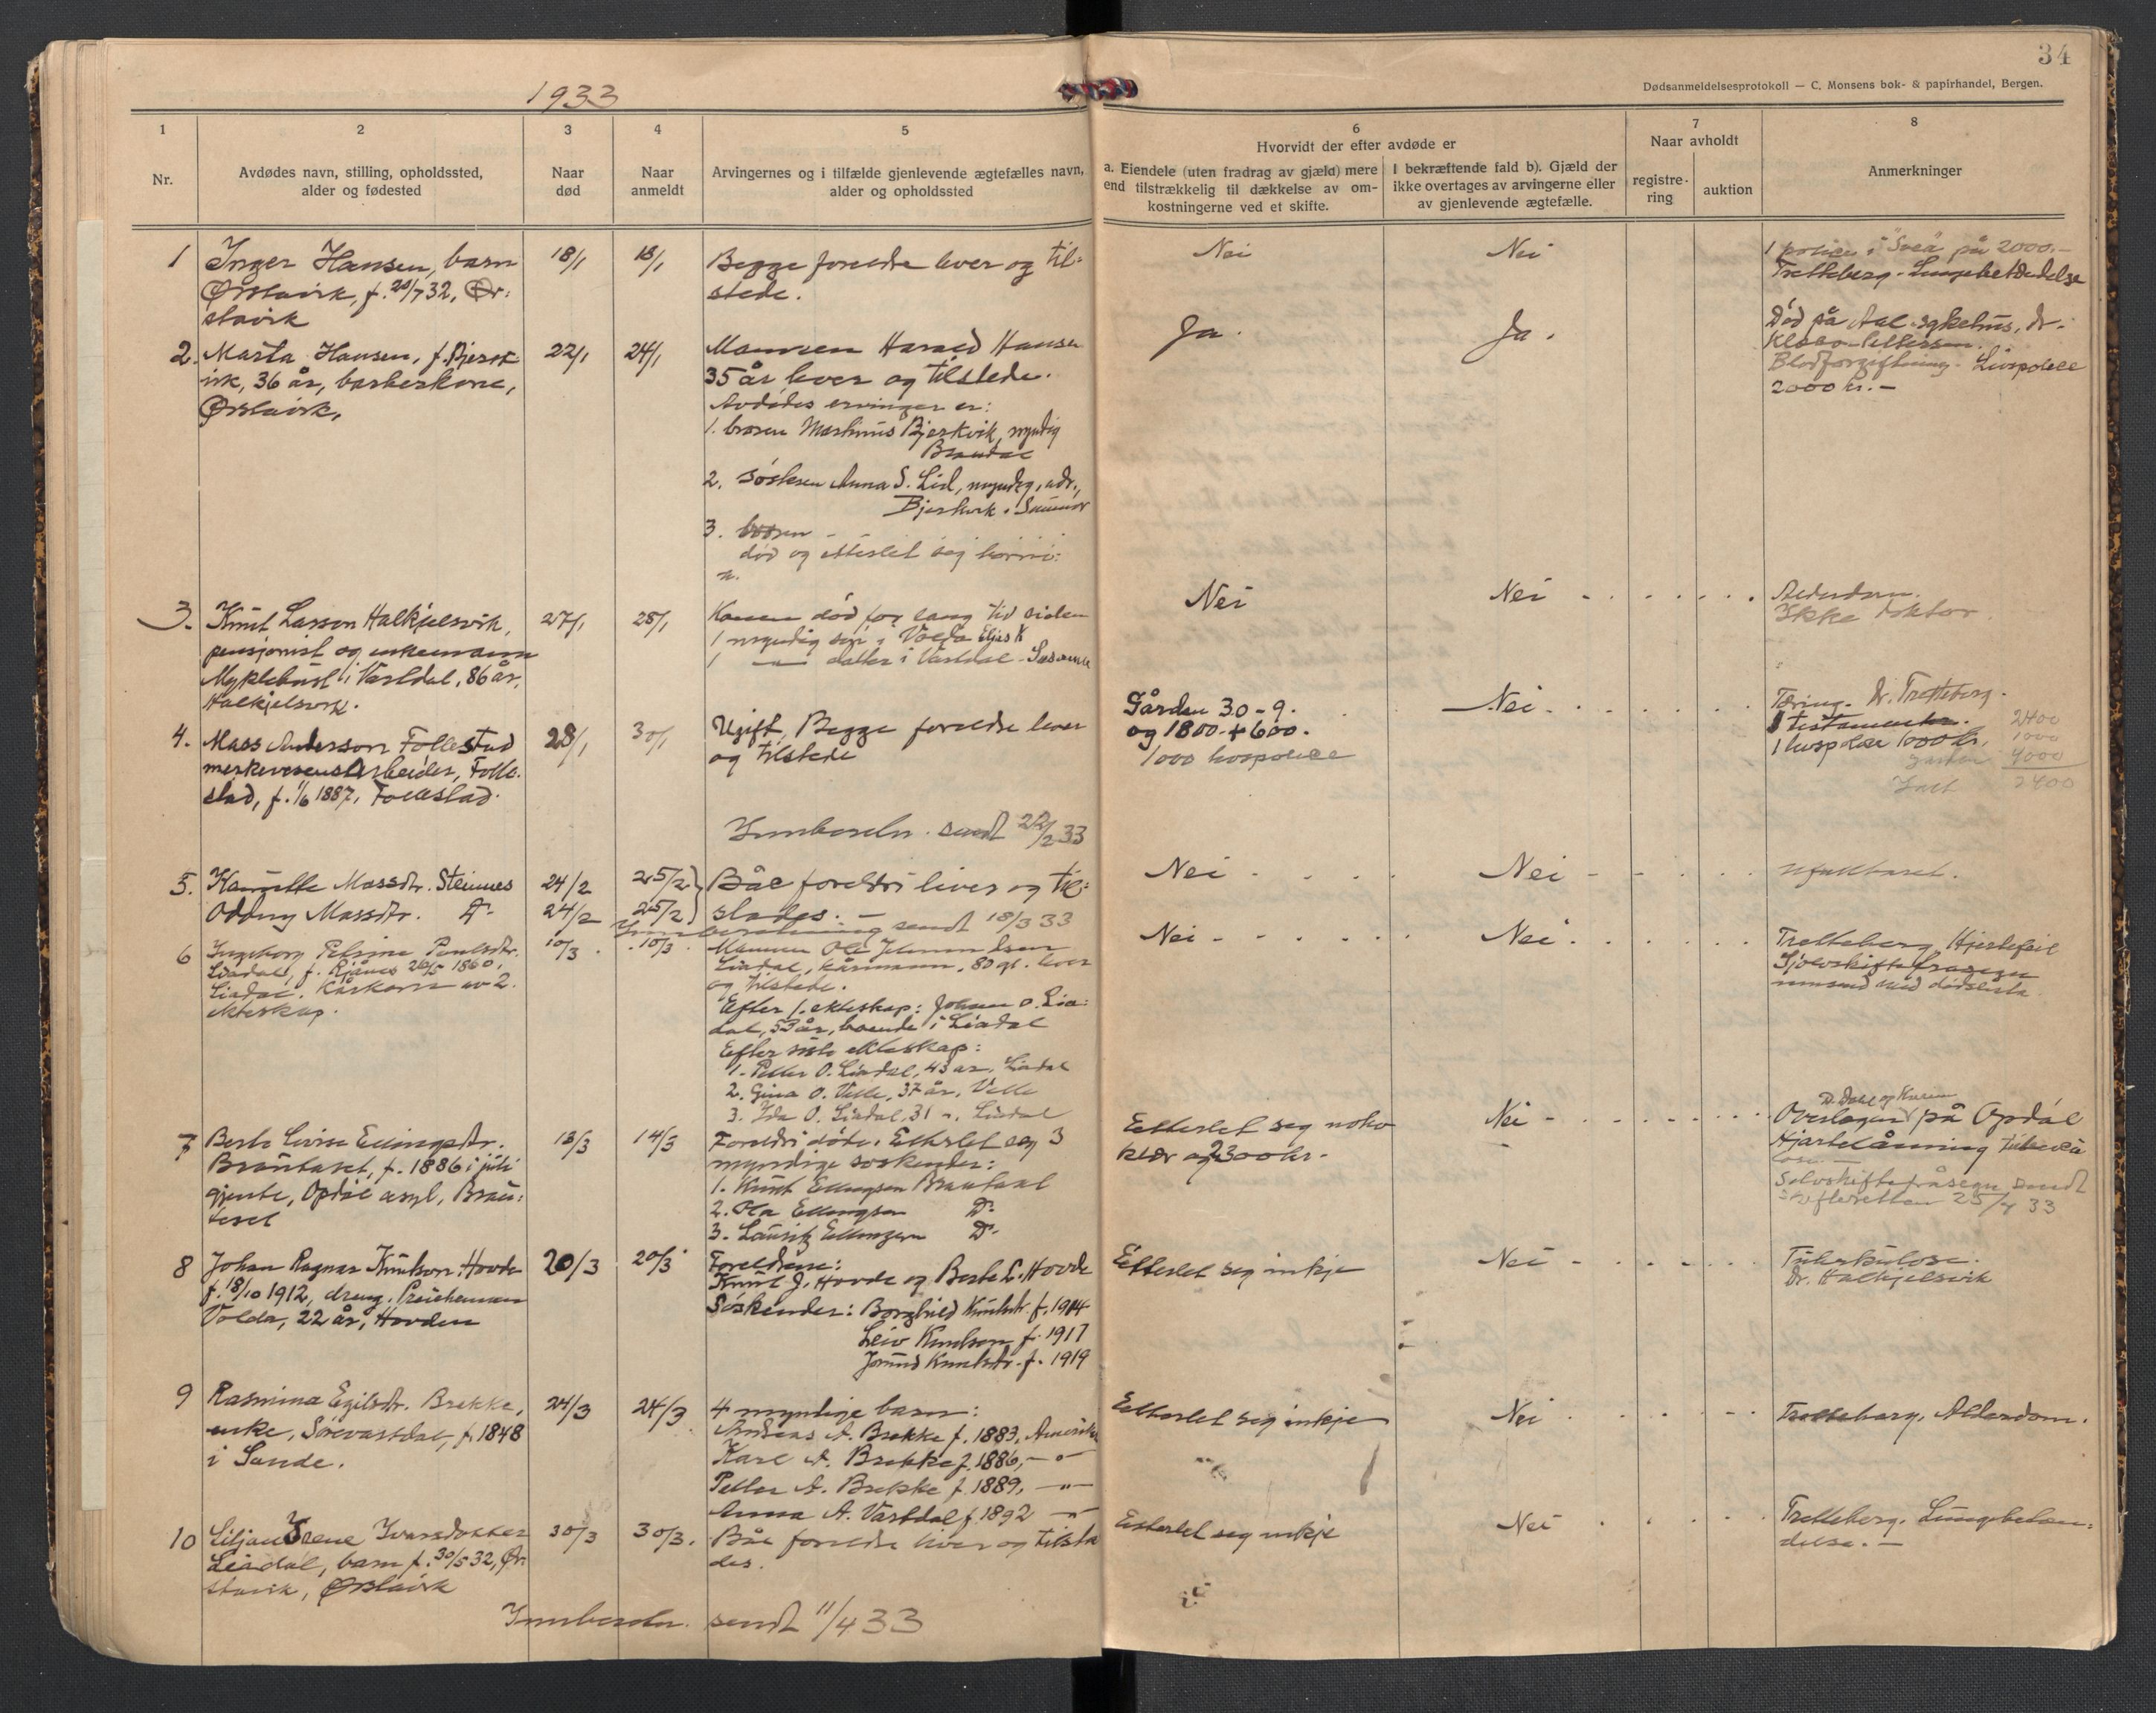 34
Dødsanmeldelsesprotokoll — C. Monsens bok- & papirhandel, Bergen.
1933
1
2
3
4
5
6
7
8
Nr.
Avdødes navn, stilling, opholdssted,
alder og fødested
Naar
død
Naar
anmeldt
Arvingernes og i tilfælde gjenlevende ægtefælles navn,
alder og opholdssted
Hvorvidt der efter avdøde er
a. Eiendele (uten fradrag av gjæld) mere
end tilstrækkelig til dækkelse av om-
kostningerne ved et skifte.
I bekræftende fald b). Gjæld der
ikke overtages av arvingerne eller
av gjenlevende ægtefælle.
Naar avholdt
registre-
ring
auktion
Anmerkninger
1
Inger Hansen, barn
Ørstavik, f. 20/7 32, Ør:
stavik
18/1
18/1
Begge foreldre lever og til:
stede.
Nei
Nei
1 polise i "Svea" på 2000.-
Tretteberg - Lungebetendelse
2.
Marta Hansen, f. Bjerk
vik, 36 år, barberkone,
Ørstavik,
22/1
24/1
Mannen Harald Hansen
35 år lever og tilstede.
Avdødes arvinger er:
1. broren Martinus Bjerkvik, myndig
Brandal
2. søsteren Anna S. Lid, myndig, adr.,
Bjerkvik i
3. broren -
død og etterlet seg born
Ja.
Ja.
Død på Aal. sykehus, dr.
Blodforgiftning - Livspolise
2000 kr. -
3.
Knut Larsen Halkjelsvik,
pensjonist og enkemann
Myklebust i Vartdal, 86 år,
Halkjelsvik.
27/1
28/1
Konen død for lang tid siden
1 myndig søn i Volda Elias K
1 —"— datter i Vartdal - Susanne
Nei
Nei
Alderdom.
Ikke doktor.
4.
Mass Anderson Follestad
merkevesensarbeider, Folle:
stad, f. 1/6 1887, Follestad.
28/1
30/1
Ugift, Begge foreldre lever
og tilstede
Innberetn. sendt 22/2 33
Gården 30-9.
og 1800 + 600.
1000 livspolise
Nei
Tæring. Dr. Tretteberg.
1 testamente.
1 livspolise 1000 kr.
2400
1000
4000
7400
5.
Kamille Massdtr. Steinnes
Oddny Massdtr. Do
24/2
24/2
25/2
25/2
Båe foreldri liver og til:
stades. -
Innberetning sendt 18/3 33
Nei
Nei
6
Ingeborg Petrine Paulsdtr.
Liadal, f. Rjånes 26/5 1860,
Liadal. Kårkone av 2.
ekteskap.
10/3
10/3
Mannen Ole Johannsen
Liadal, kårmann, 80 gl. lever
og tilstede.
Efter 1. ekteskap: Johan O. Lia:
dal, 53 år, boende i Liadal
Efter siste ekteskap:
1. Petter O. Liadal, 43 år, Liadal
2. Gina O. Velle, 37 år, Velle
3. Ida O. Liadal, 31 ", Liadal
Nei
Nei
Tretteberg, Hjertefeil
innsend med dødslista.
7
Berte Lovise Ellingsdtr.
Brautaset, f. 1886 i juli
gjente, Opdøl asyl, Brau:
taset
13/3
14/3
Foreldri døde. Etterlet seg 3
myndige søskender:
1. Knut Ellingsen Brautaset
2. Ola Ellingsen Do
3. Lauritz Ellingsen Do
Etterlet seg noko
klær og 2300 kr. -
Nei -
på Opdøl
Hjartelåmning
sendt
skifteretten 25/4 33
8
Johan Ragnar Knutson Hovde
f. 18/10 1912, dreng,
Volda, 22 år, Hovden
20/3
20/3
Foreldrene:
Knut J. Hovde og Berte L. Hovde
Søskender: Borghild Knutsdtr. f. 1914
Leiv Knutson f. 1917
Jorund Knutsdtr. f. 1919
Etterlet seg inkje
Nei
Tuberkulose.
Dr. Halkjelsvik
9
Rasmina Egilsdtr. Brekke,
enke, Sørevartdal, f. 1848
i Sande.
24/3
24/3
4 myndige barn:
Andreas A. Brekke f. 1883, Amerika
Karl A. Brekke f. 1886, —"—
Petter A. Brekke f. 1889, —"—
Anna A. Vartdal f. 1892 —"—
Etterlet seg inkje
Nei
Tretteberg, Alderdom.
10
Liljan Irene Ivarsdotter
Liadal, barn f. 30/5 32, Ør:
stavik, Ørstavik
30/3
30/3.
Båe foreldre liver og tilsta
des.
Etterlet seg inkje
Nei
Tretteberg, Lungebeten:
delse. -
Innberetn. sendt 11/4 33